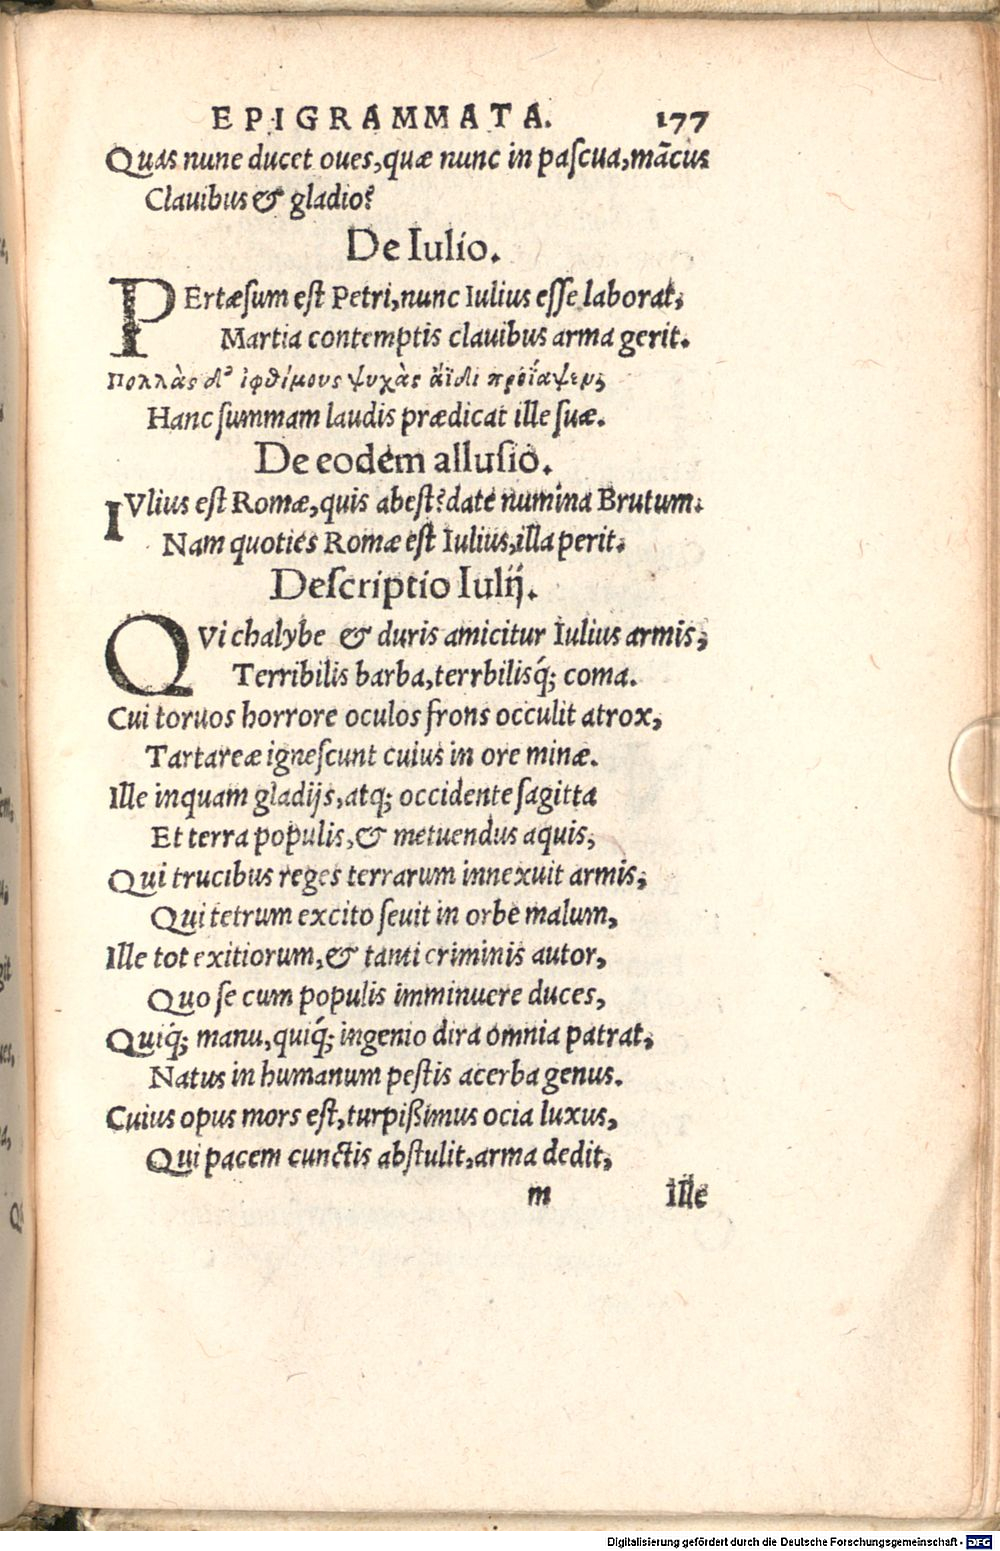 EPIGRAMMATA. 177
Quas nunc ducet oues, quæ nunc in pascua, mãcus
Clauibus & gladio?
De Iulio.
PErtæsum est Petri, nunc Iulius esse laborat,
Martia contemptis clauibus arma gerit.
Πολλὰς δ' ἰφθίμους ψυχὰς ἄϊδι προΐαψεν,
Hanc summam laudis prædicat ille suæ.
De eodem allusio.
IVlius est Romæ, quis abest? date numina Brutum.
Nam quoties Romæ est Iulius, illa perit.
Descriptio Iulij.
QVi chalybe & duris amicitur Iulius armis,
Terribilis barba, terrbilisq́; coma.
Cui toruos horrore oculos frons occulit atrox,
Tartareæ ignescunt cuius in ore minæ.
Ille inquam gladijs, atq; occidente sagitta
Et terra populis, & metuendus aquis,
Qui trucibus reges terrarum innexuit armis,
Qui tetrum excito seuit in orbe malum,
Ille tot exitiorum, & tanti criminis autor,
Quo se cum populis imminuere duces,
Quiq́; manu, quiq́; ingenio dira omnia patrat,
Natus in humanum pestis acerba genus.
Cuius opus mors est, turpißimus ocia luxus,
Qui pacem cunctis abstulit, arma dedit,
m Ille
Digitalisierung gefördert durch die Deutsche Forschungsgemeinschaft - DFG